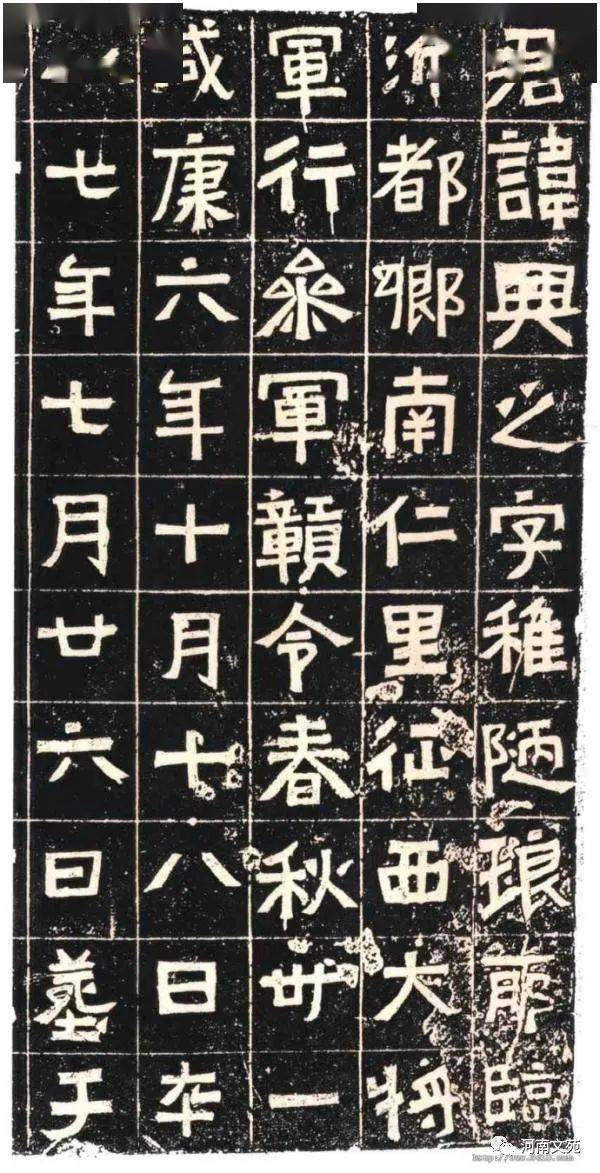 君諱興之字稚陋琅耶臨
沂都鄉南仁里征西大將
軍行參軍贛令春秋卅一
咸康六年十月十八日卒
以七年七月廿六日葬于
河南文苑